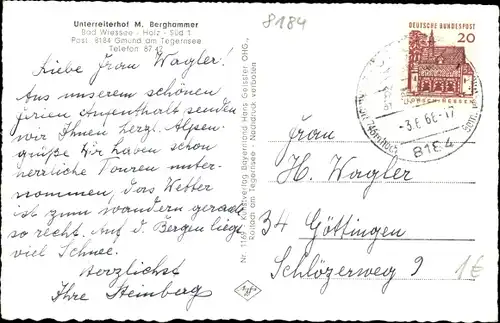 Unterreiterhof M. Berghammer
Bad Wiessee - Holz - Süd 1
Post 8184 Gmund am Tegernsee
Telefon 87 42
8184
Liebe Frau Wagler!
Aus unserem schönen
Ferien Aufenthalt senden
wir Ihnen herzl. Alpen-
grüße. Wir haven schon
herrliche Touren unter-
nommen, das Wetter
ist zum wandern gerade
so recht. Auf d. Bergen liegt
viel Schnee.
Herzlichst
Ihre Steinberg
Nr. 1168 - Kunstverlag Bayernland Hans Geissler OHG.,
Rottach am Tegernsee - Nachdruck verboten
DEUTSCHE BUNDESPOST
20
LORSCH HESSEN
-3.6.66-17
8184
Frau
H. Wagler
34 Göttingen
Schlözerweg 9
1€